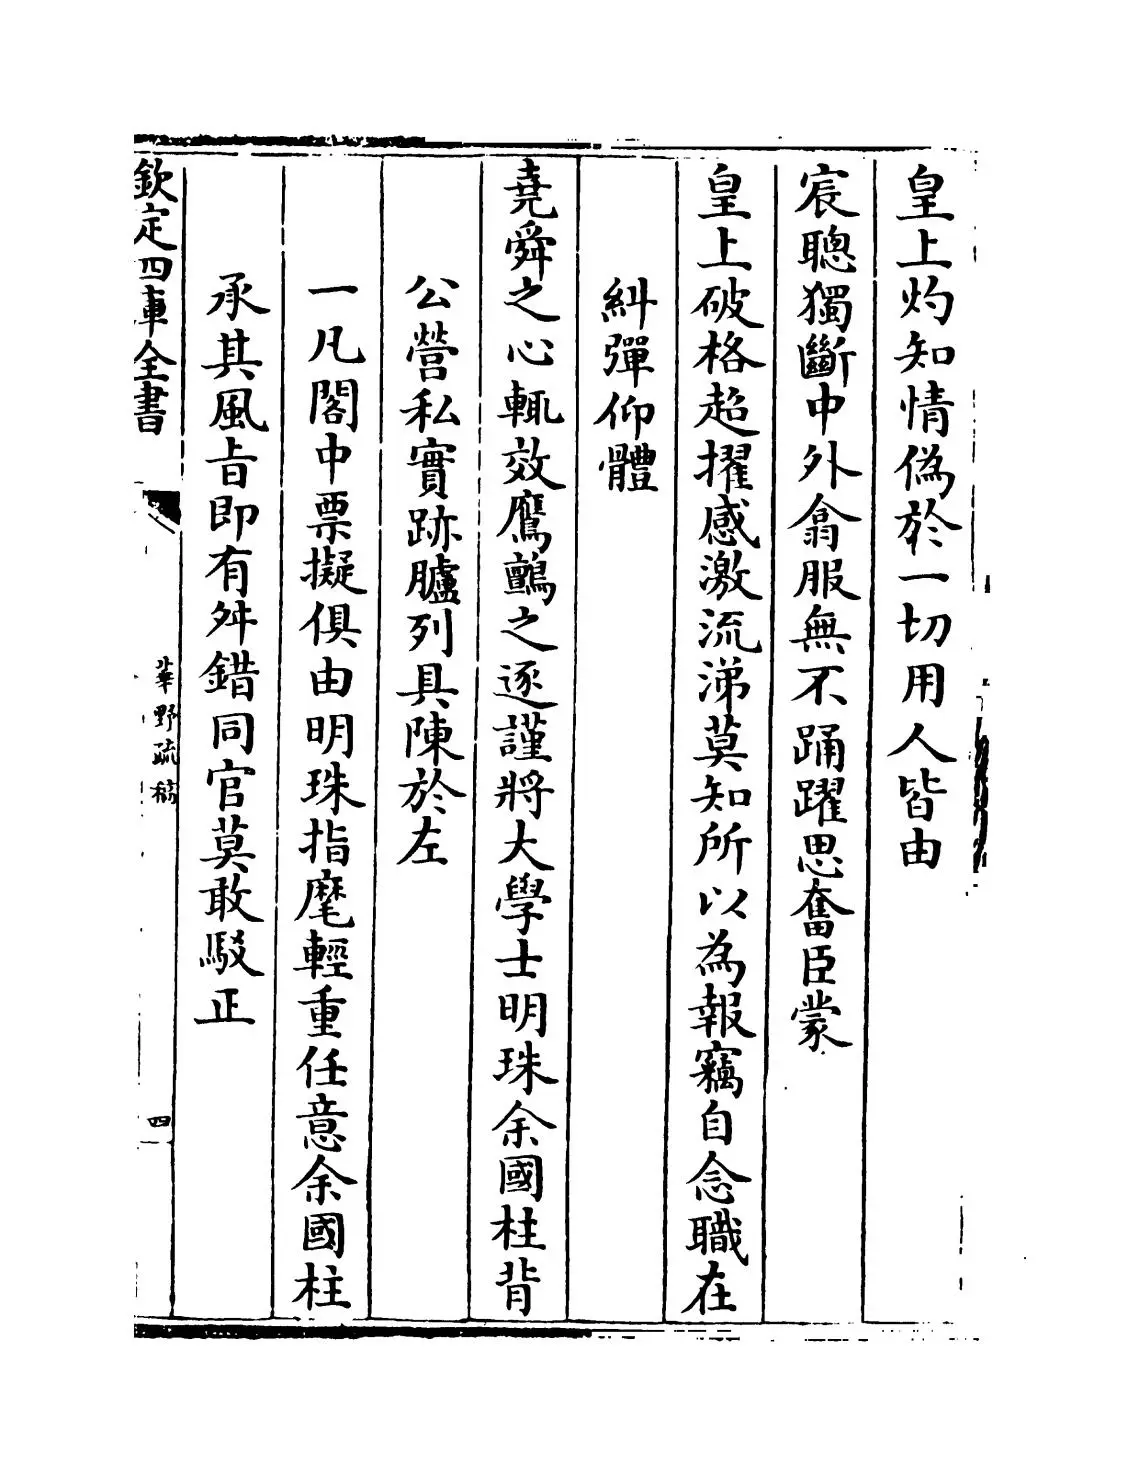 皇上灼知情偽於一切用人皆由
宸聰獨斷中外翕服無不踊躍思奮臣蒙
皇上破格超擢感激流涕莫知所以為報竊自念職在
糾彈仰體
堯舜之心輒效鷹鸇之逐謹將大學士明珠余國柱背
公營私實跡臚列具陳於左
一凡閣中票擬俱由明珠指麾輕重任意余國柱
承其風旨即有舛錯同官莫敢駁正
欽定四庫全書
華野疏稿
四